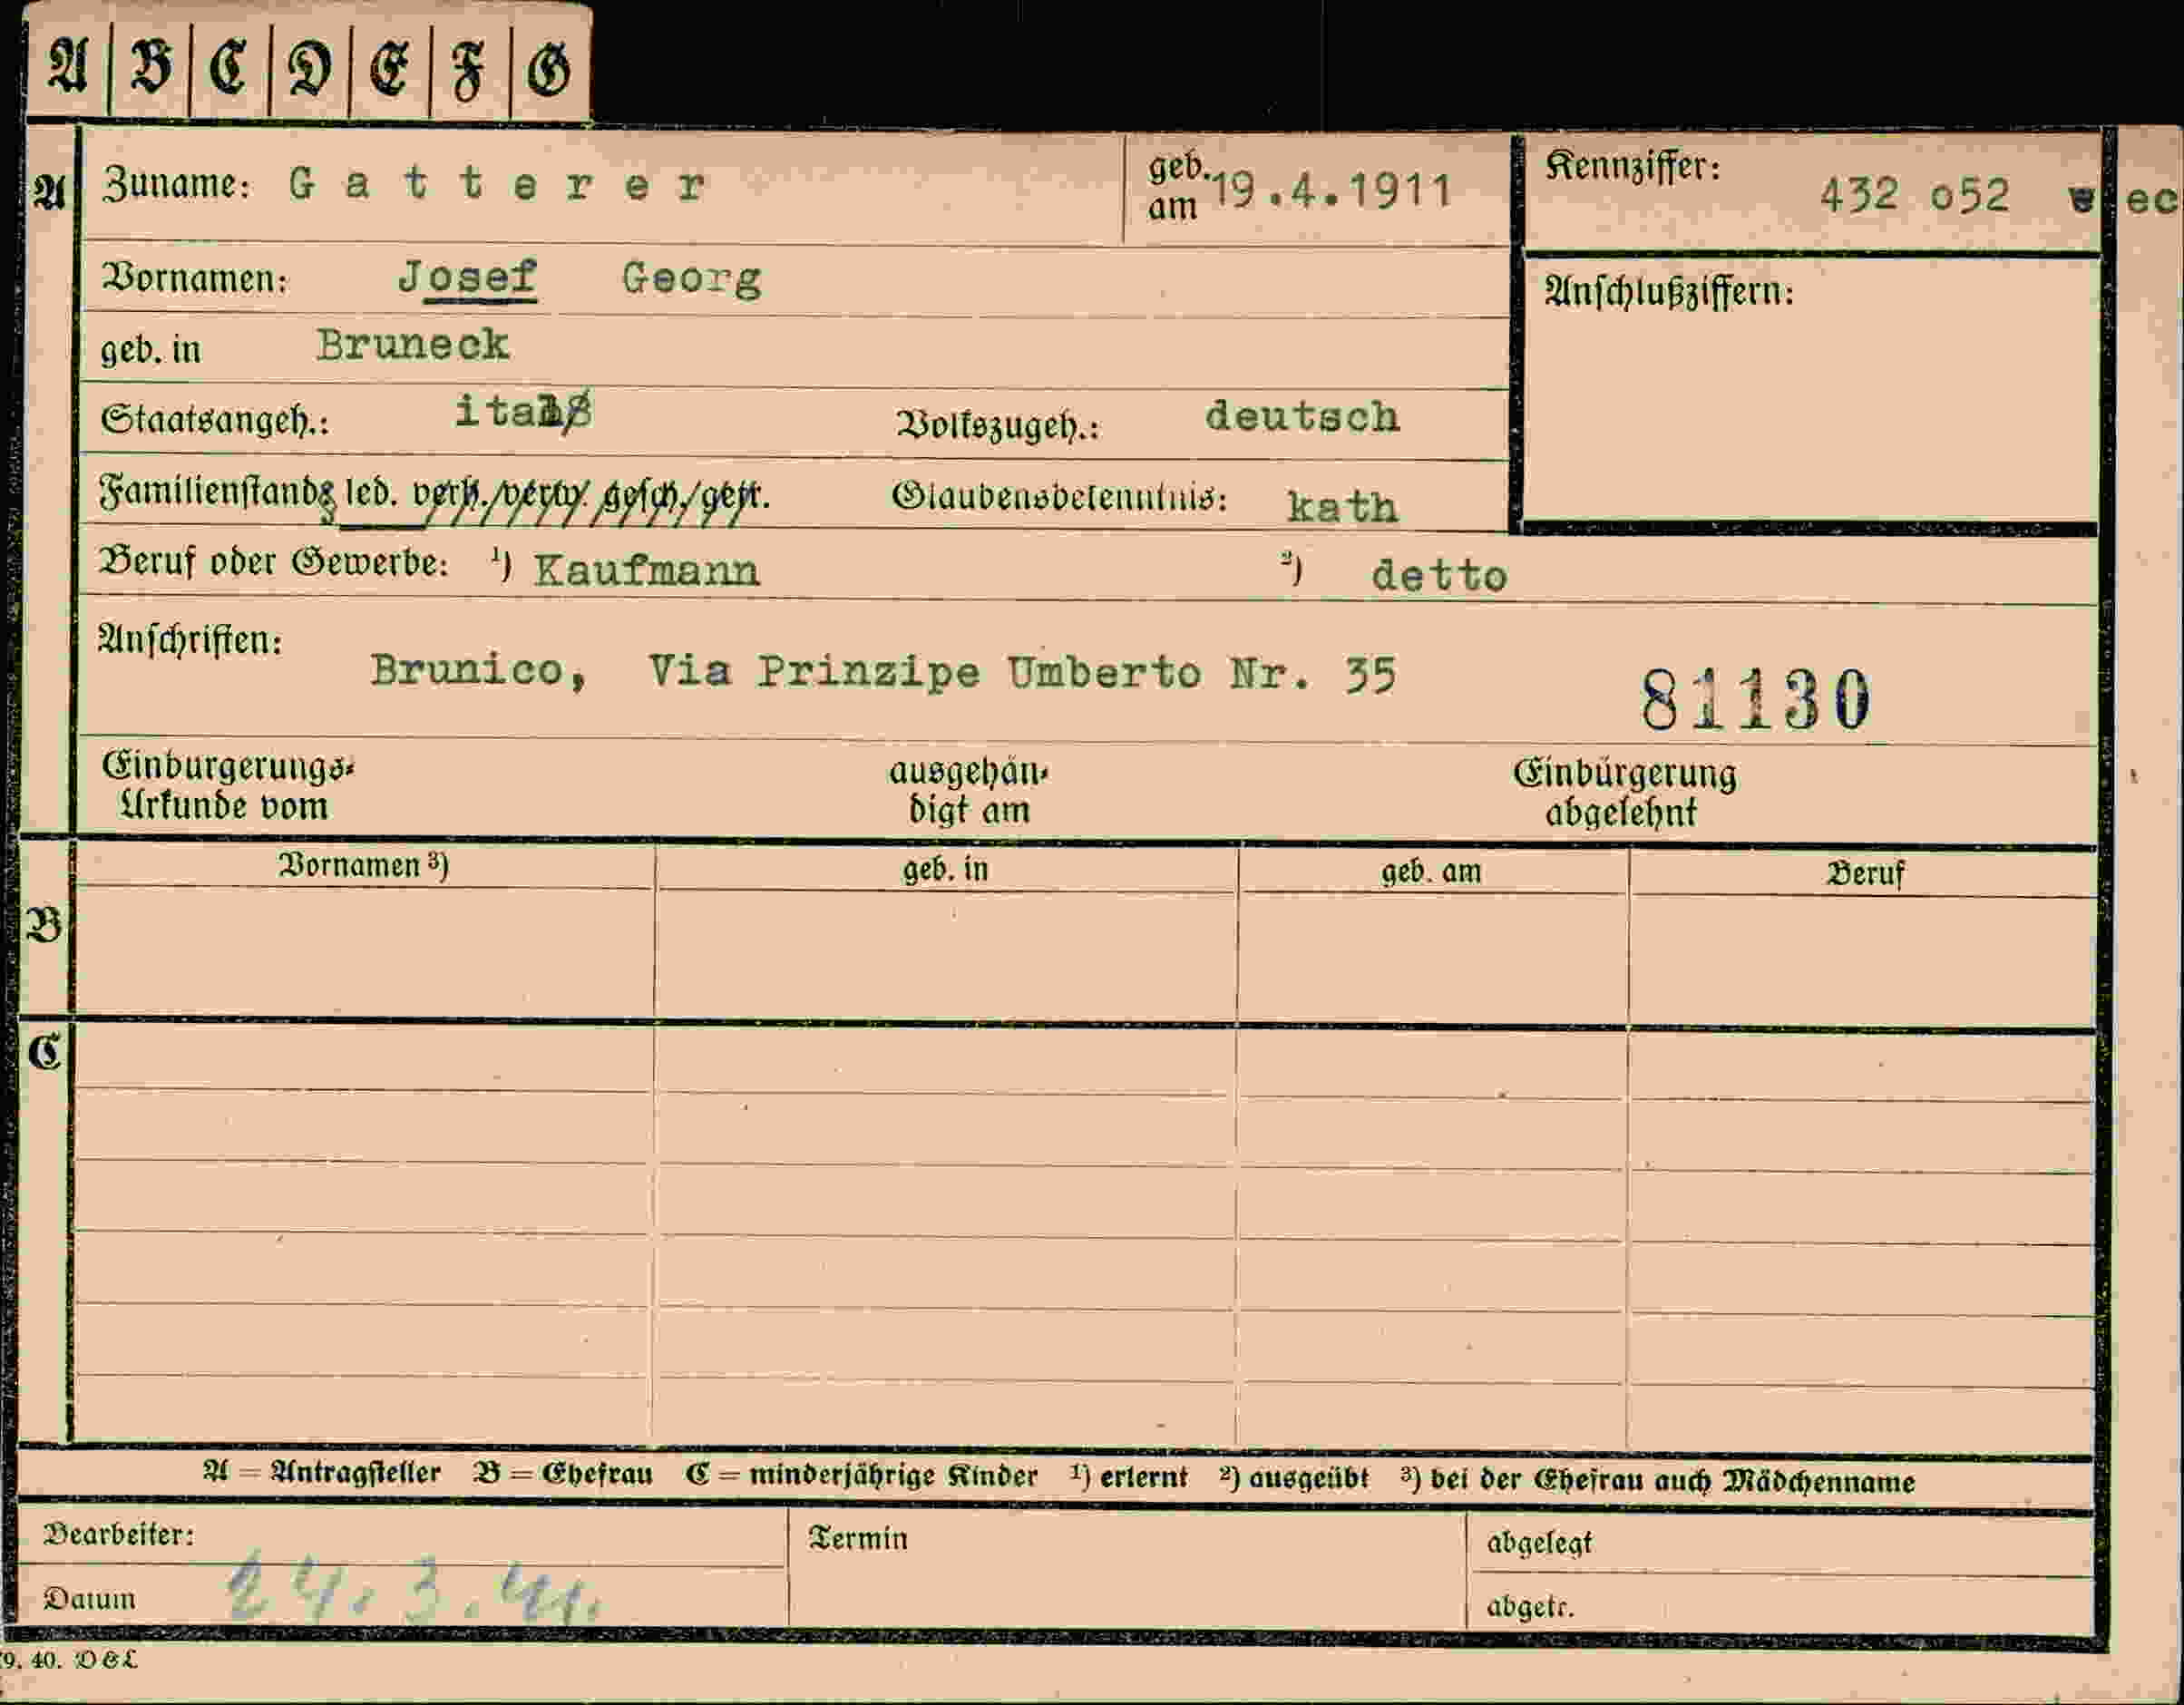 A B C D E F G
A Zuname: Gatterer geb. am 19.4.1911 Kennziffer: 432 o52 ec
Vornamen: Josef Georg Anschlußziffern:
geb. in Bruneck
Staatsangeh.: ital Volkszugeh.: deutsch
Familienstand led. verh./verw. gesch./getr. Glaubensbekenntnis: kath
Beruf oder Gewerbe: ¹) Kaufmann ²) detto
Anschriften:
Brunico, Via Prinzipe Umberto Nr. 35 81130
Einbürgerungs- ausgehän- Einbürgerung
Urkunde vom digt am abgelehnt
Vornamen ³) geb. in geb. am Beruf
B
C
A = Antragsteller B = Ehefrau C = minderjährige Kinder ¹) erlernt ²) ausgeübt ³) bei der Ehefrau auch Mädchenname
Bearbeiter: Termin abgelegt
Datum 24.3.41. abgetr.
9. 40. D&L